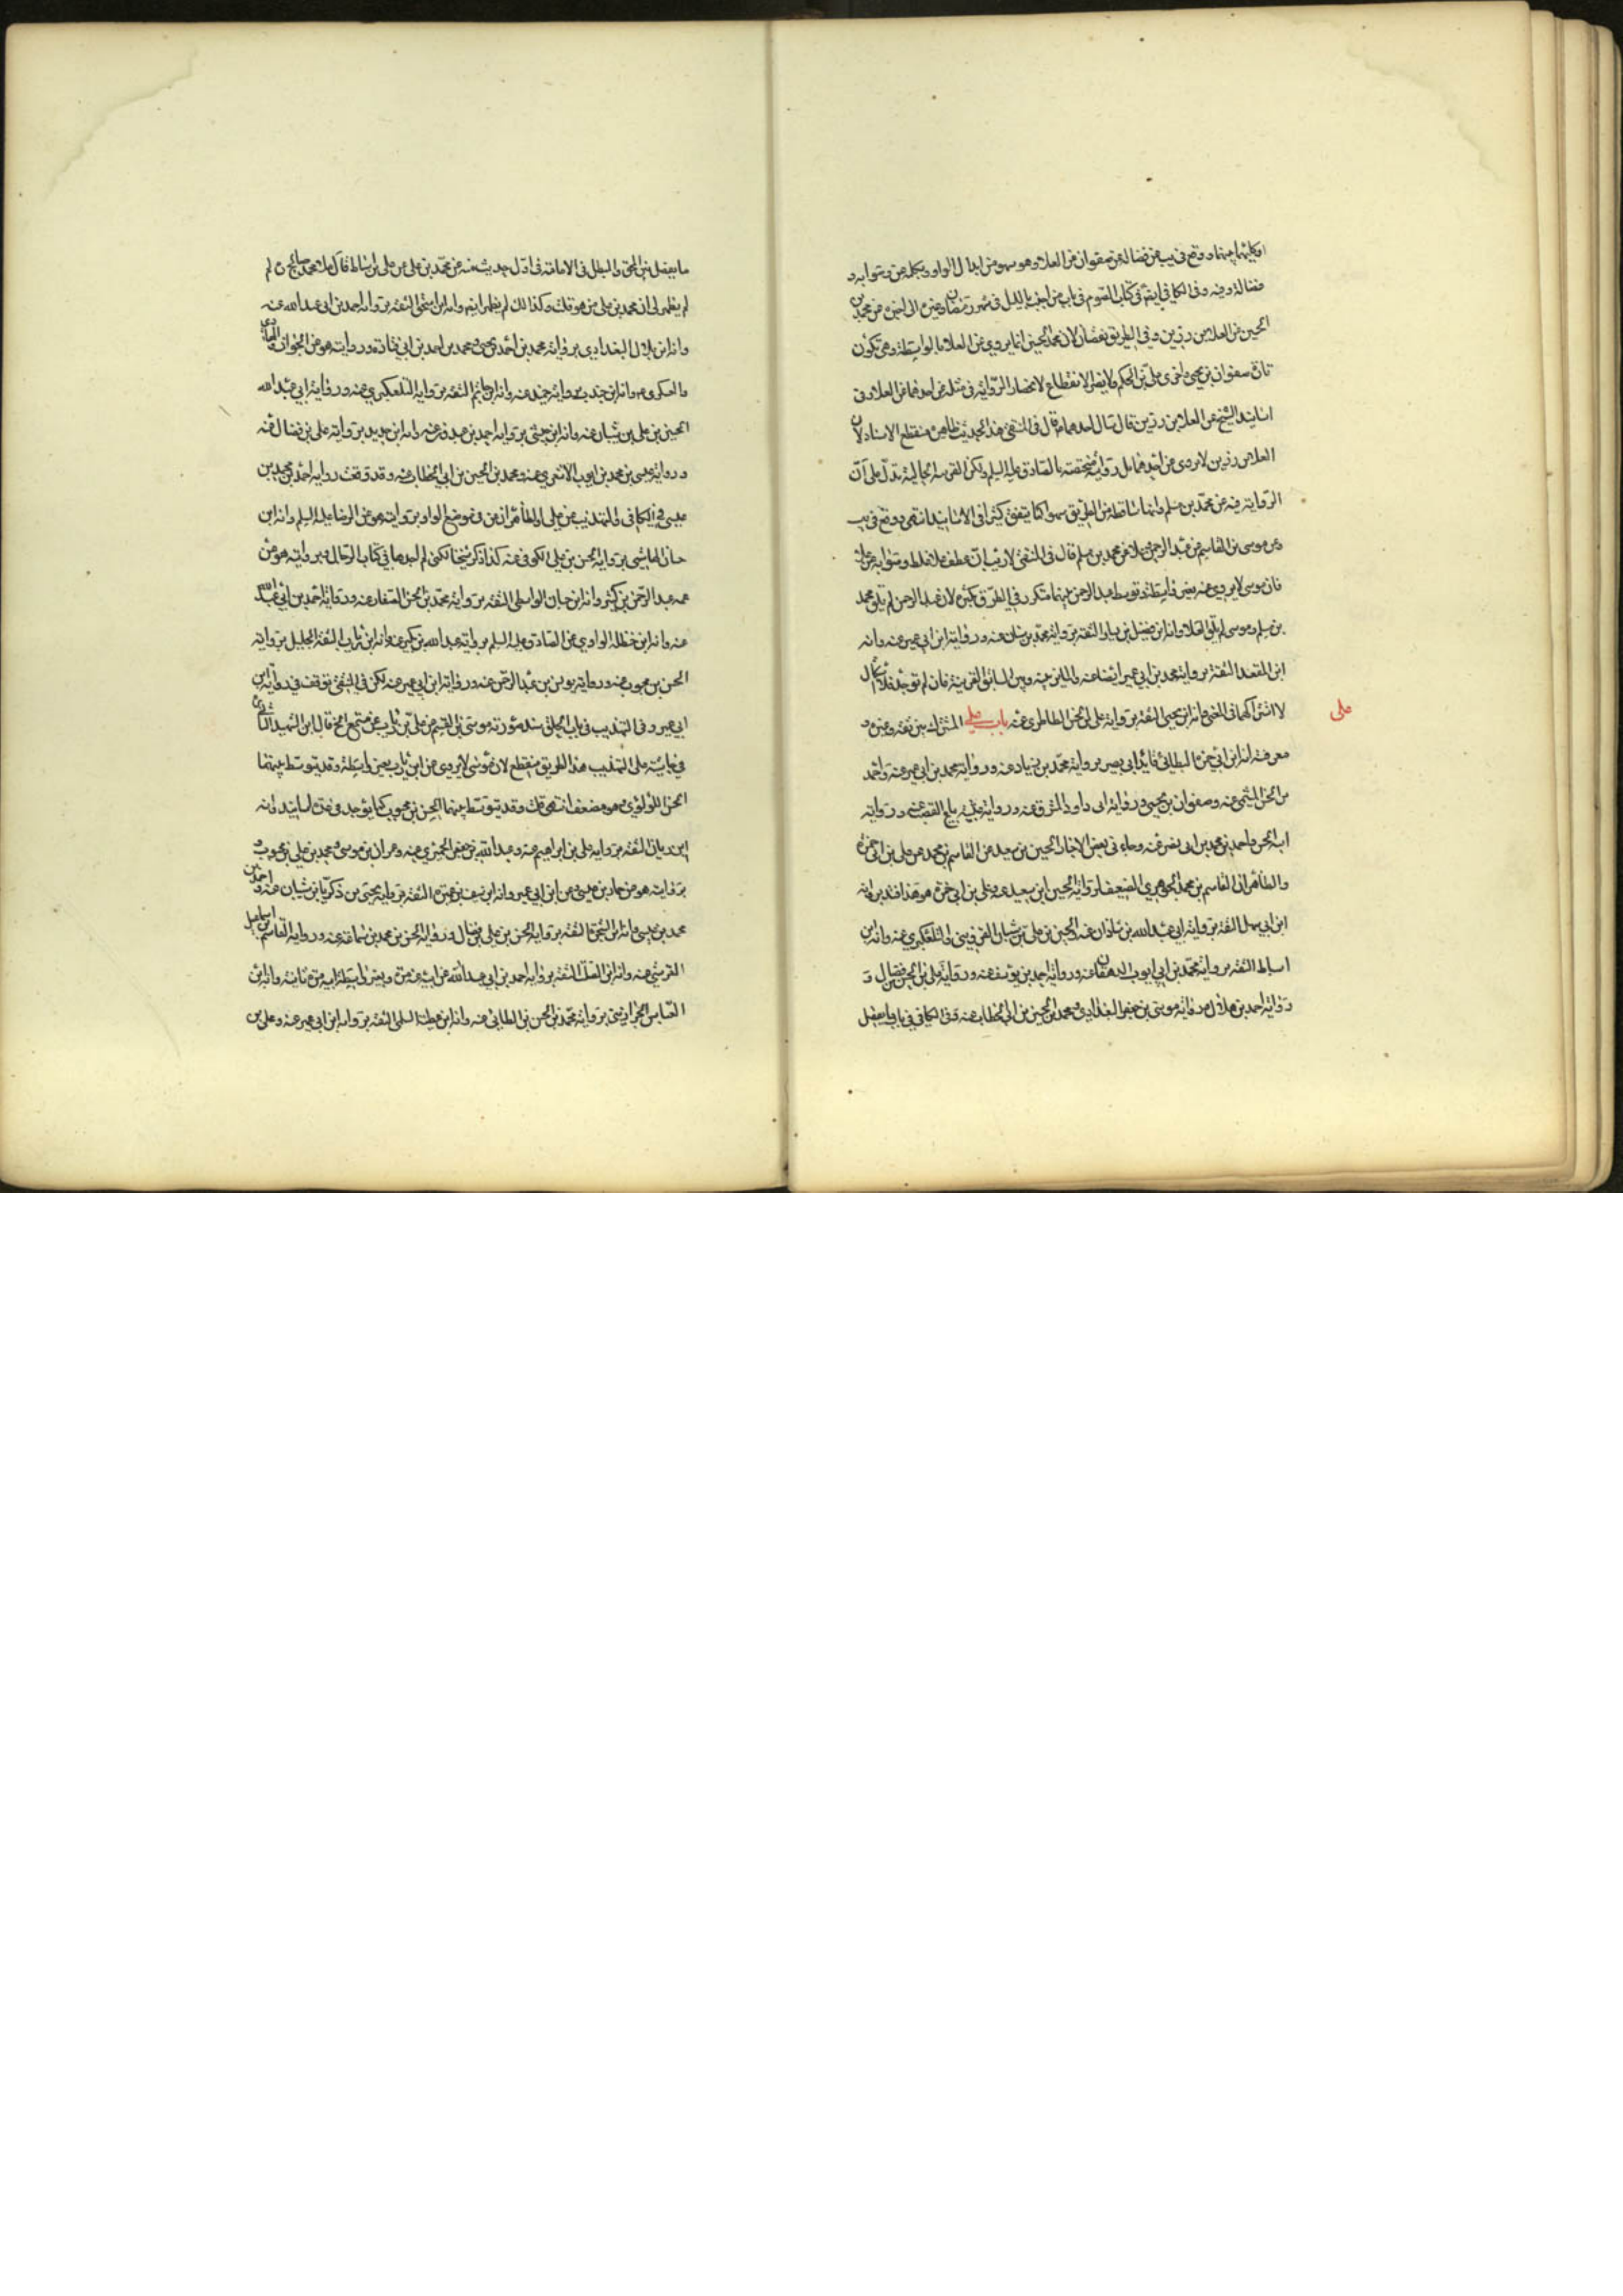 او كليهما منهما ووقع في يب عن فضالة عن صفوان عن العلا وهو سهو من ابدال الواو وبكلمة عن وصوابه و
فضالة وفيه وفي الكافي ايضا في كتاب الصوم في باب من اجنب بالليل في شهر رمضان وغيره الى اخره عن محمد بن
الحسين عن العلا بن رزين وفي الطريق نقصان لان محمد بن الحسين انما يروي عن العلا بالواسطة وهي تكون
تارة صفوان بن يحيى واخرى علي بن الحكم ولا يضر الانقطاع لانحصار الرواية في مثله عن احدهما عن العلا وفي
اسانيد الشيخ عن العلا بن رزين قال سال احدهما قال في المنتقى هذا الحديث ظاهره منقطع الاسناد لان
العلا بن رزين لا يروي عن احدهما بل روايته مختصة بالصادق عليه السلم ولكن القرينة الحالية تدل على ان
الرواية فيه عن محمد بن مسلم وانها ساقطة من الطريق سهوا كما يتفق كثيرا في الاسانيد انتهى ووقع في يب
عن موسى بن القاسم عن عبد الرحمن وعلا عن محمد بن مسلم قال في المنتقى لا ريب ان عطف علا غلط وصوابه عن علا
فان موسى لا يروي عنه بغير واسطة وتوسط عبد الرحمن بينهما متكرر في الطرق كثير لان عبد الرحمن لم يلق محمد
بن مسلم وموسى لم يلق العلا وانه ابن فضيل بن يسار الثقة برواية محمد بن سنان عنه ورواية ابن ابي عمير عنه وانه
ابن المقعد الثقة برواية محمد بن ابي عمير ايضا عنه والمايز بينه وبين السابق القرينة فان لم توجد فلا اشكال
لاشتراكهما في المعنى وانه ابن يحيى الثقة برواية علي بن الحسن الطاطري عنه باب علي المشترك بين ثقة وغيره و
علي
معرفة انه ابن ابي حمزة البطائني قائد ابي بصير برواية محمد بن زياد عنه ورواية محمد بن ابي عمير عنه واحمد
بن الحسن الميثمي عنه وصفوان بن يحيى ورواية ابي داود المسترق عنه ورواية علي بياع القصب عنه ورواية
ابن الحسن واحمد بن محمد بن ابي نصر عنه وجاء في بعض الاخبار الحسين بن سعيد عن القاسم بن محمد عن علي بن ابي حمزة
والظاهر انه القاسم بن محمد الجوهري الضعيف لرواية الحسين ابن سعيد عنه وعلي بن ابي حمزة هو هذا قائد وانه
ابن ابي سهل الثقة برواية ابي عبد الله بن شاذان عنه والحسين بن علي بن شيبان القزويني والتلعكبري عنه وانه ابن
اسباط الثقة برواية محمد بن ابي ايوب الدهقان عنه ورواية احمد بن يوسف عنه ورواية علي بن الحسن بن فضال و
رواية احمد بن هلال ورواية موسى بن جعفر البغدادي ومحمد بن الحسين بن ابي الخطاب عنه وفي الكافي في باب ما يفصل
ما يفصل بين المحق والمبطل في الامامة في اول حديث منه عن محمد بن علي عن علي بن اسباط قال ملا محمد صالح ره لم
لم يظهر لي ان محمد بن علي من هو قلت وكذلك لم يظهر ايضا وانه ابن اسحق الثقة برواية احمد بن ابي عبد الله عنه
وانه ابن بلال البغدادي برواية محمد بن احمد بن يحيى ومحمد بن احمد بن ابي قتادة وروايته هو عن الجواد والهادي
والعسكري ع وانه ابن جندب برواية حميد عنه وانه ابن حاتم الثقة برواية التلعكبري عنه ورواية ابي عبد الله
الحسين بن علي بن شيبان عنه وانه ابن حبشي برواية احمد بن عبدون عنه وانه ابن حديد برواية علي بن فضال عنه
ورواية عيسى بن محمد بن ايوب الاشعري عنه ومحمد بن الحسين بن ابي الخطاب عنه وقد وقعت رواية احمد بن محمد بن
عيسى في الكافي والتهذيب عن علي والظاهر ان عن في موضع الواو بروايته هو عن الرضا عليه السلم وانه ابن
حسان الهاشمي برواية الحسن بن علي الكوفي عنه كذا ذكر شيخنا لكني لم اجدها في كتاب الرجال وبروايته هو عن
عمه عبد الرحمن بن كثير وانه ابن حسان الواسطي الثقة برواية محمد بن الحسن الصفار عنه ورواية احمد بن ابي عبد الله
عنه وانه ابن حنظلة الراوي عن الصادق عليه السلم برواية عبد الله بن بكير عنه وانه ابن رئاب الثقة الجليل برواية
الحسن بن محبوب عنه ورواية يونس بن عبد الرحمن عنه ورواية ابن ابي عمير عنه لكن في المنتقى توقف في رواية ابن
ابي عمير وفي التهذيب في باب الحلق سند صورته موسى بن القسم عن علي بن رئاب عن مسمع الخ قال ابن الشهيد الثاني
في حاشية على التهذيب هذا الطريق منقطع لان موسى لا يروي عن ابن رئاب بغير واسطة وقد يتوسط بينهما
الحسن اللؤلؤي وهو مضعف انتهى قلت وقد يتوسط بينهما الحسن بن محبوب كما يوجد في عدة اسانيد وانه
ابن ريان الثقة برواية علي بن ابراهيم عنه وعبد الله بن جعفر الحميري عنه وعمران بن موسى ومحمد بن علي بن محبوب و
بروايته هو عن حماد بن عيسى وعن ابن ابي عمير وانه ابن سيف بن عميرة الثقة برواية يحيى بن زكريا بن شيبان عنه واحمد بن
محمد بن عيسى وانه ابن شجرة الثقة برواية الحسن بن علي بن فضال ورواية الحسن بن محمد بن سماعة عنه ورواية القاسم بن اسماعيل
القرشي عنه وانه ابن الصلت الثقة برواية احمد بن ابي عبد الله عن ابيه عنه مرة وبغير واسطة ابيه مرة ثانية وانه ابن
العباس الجراذيني برواية محمد بن الحسن بن الطائي عنه وانه ابن عطية السلمي الثقة برواية ابن ابي عمير عنه وعلي بن